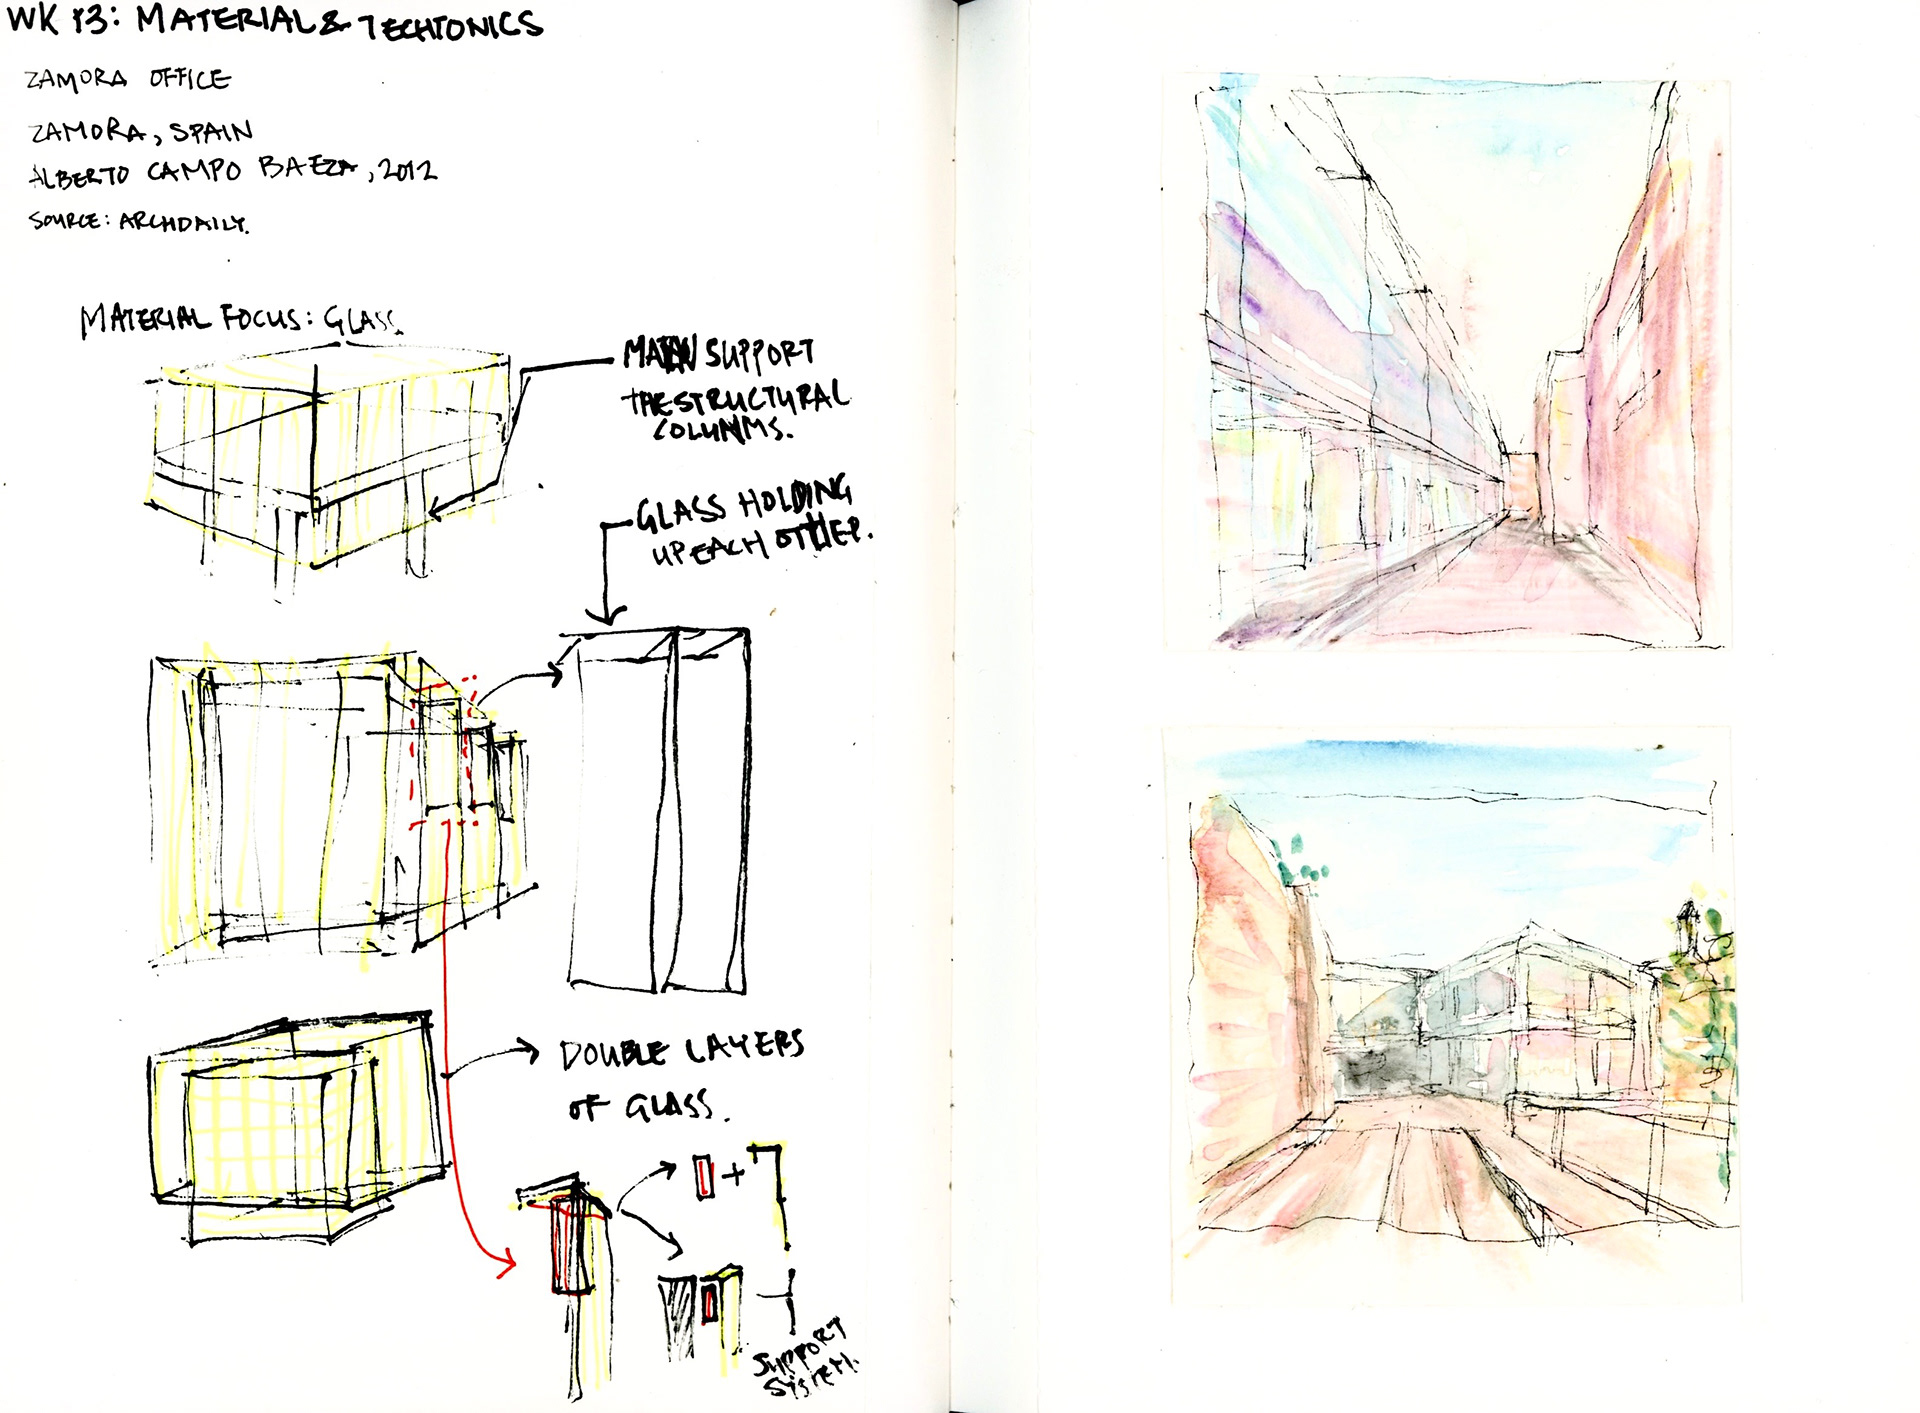 WK 13: MATERIAL & TECHTONICS
ZAMORA OFFICE
ZAMORA, SPAIN
ALBERTO CAMPO BAEZA, 2012
SOURCE: ARCHDAILY.
MATERIAL FOCUS: GLASS
MAIN SUPPORT
THE STRUCTURAL
COLUMNS.
GLASS HOLDING
UP EACH OTHER.
DOUBLE LAYERS
OF GLASS.
SUPPORT
SYSTEM.